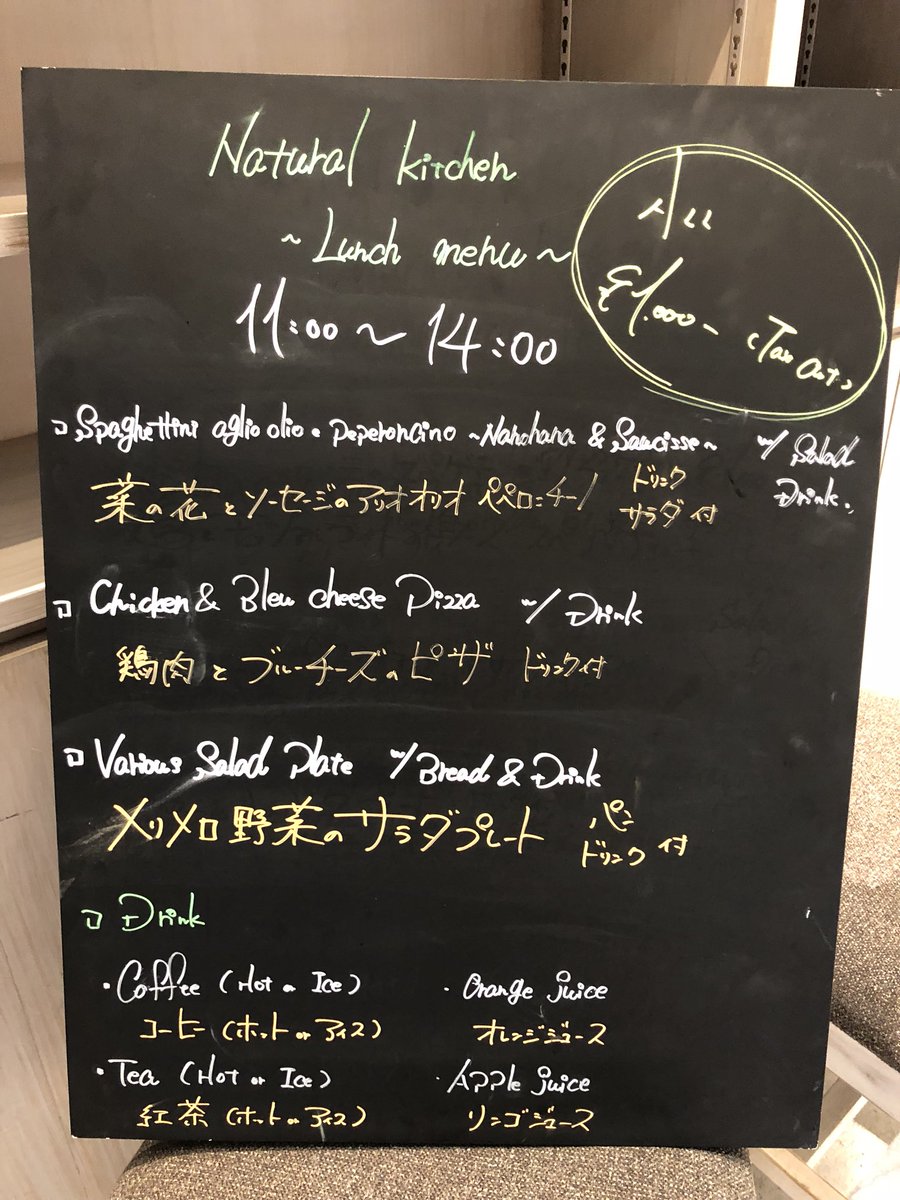 Natural kitchen
~Lunch menu~
11:00~14:00
All
¥1.000- (Tax Out)
Spaghettini aglio olio・peperoncino ~Nanohana & Saucisse~ w/ Salad Drink.
菜の花とソーセージのアーリオオーリオペペロンチーノ ドリンク サラダ付
Chicken & Bleu cheese Pizza w/ Drink
鶏肉とブルーチーズのピザ ドリンク付
Various Salad Plate w/ Bread & Drink
メリメロ野菜のサラダプレート パン ドリンク付
Drink
・Coffee (Hot or Ice)
コーヒー (ホット or アイス)
・Orange juice
オレンジジュース
・Tea (Hot or Ice)
紅茶 (ホット or アイス)
・Apple juice
リンゴジュース